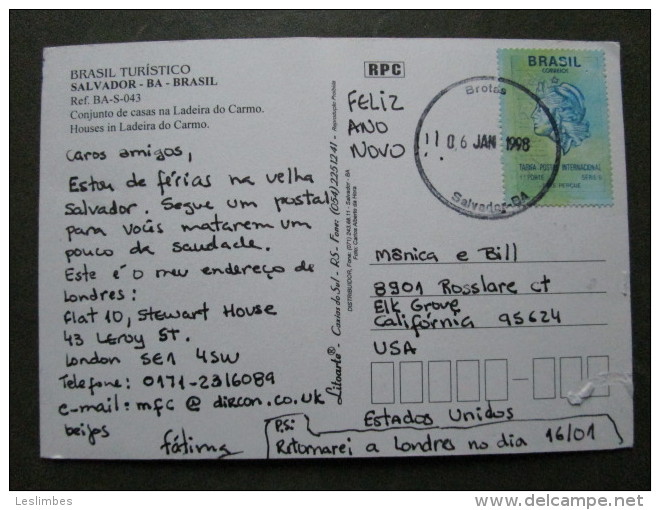 BRASIL TURÍSTICO
SALVADOR - BA - BRASIL
Ref. BA-S-043
Conjunto de casas na Ladeira do Carmo.
Houses in Ladeira do Carmo.
Caros amigos,
Estou de férias na velha
Salvador. Segue um postal
para vocês matarem um
pouco da saudade.
Este é o meu endereço de
Londres:
Flat 10, Stewart House
43 Leroy St.
London SE1 4SW
Telefone: 0171-2316089
e-mail: mfc @ dircon.co.uk
beijos
fátima
Litoarte® - Caxias do Sul - RS - Fone: (054) 225 12 41 - Reprodução Proibida
DISTRIBUIDOR, Fone: (071) 243.88.11 - Salvador - BA
Foto: Carlos Alberto da Hora
RPC
FELIZ
ANO
NOVO
Brotas
06 JAN 1998
Salvador-BA
BRASIL
CORREIOS
TARIFA POSTAL INTERNACIONAL
1º PORTE
Mônica e Bill
8901 Rosslare ct
Elk Grove
Califórnia 95624
USA
Estados Unidos
P.S:
Retornarei a Londres no dia 16/01
Leslimbes
delcampe.net